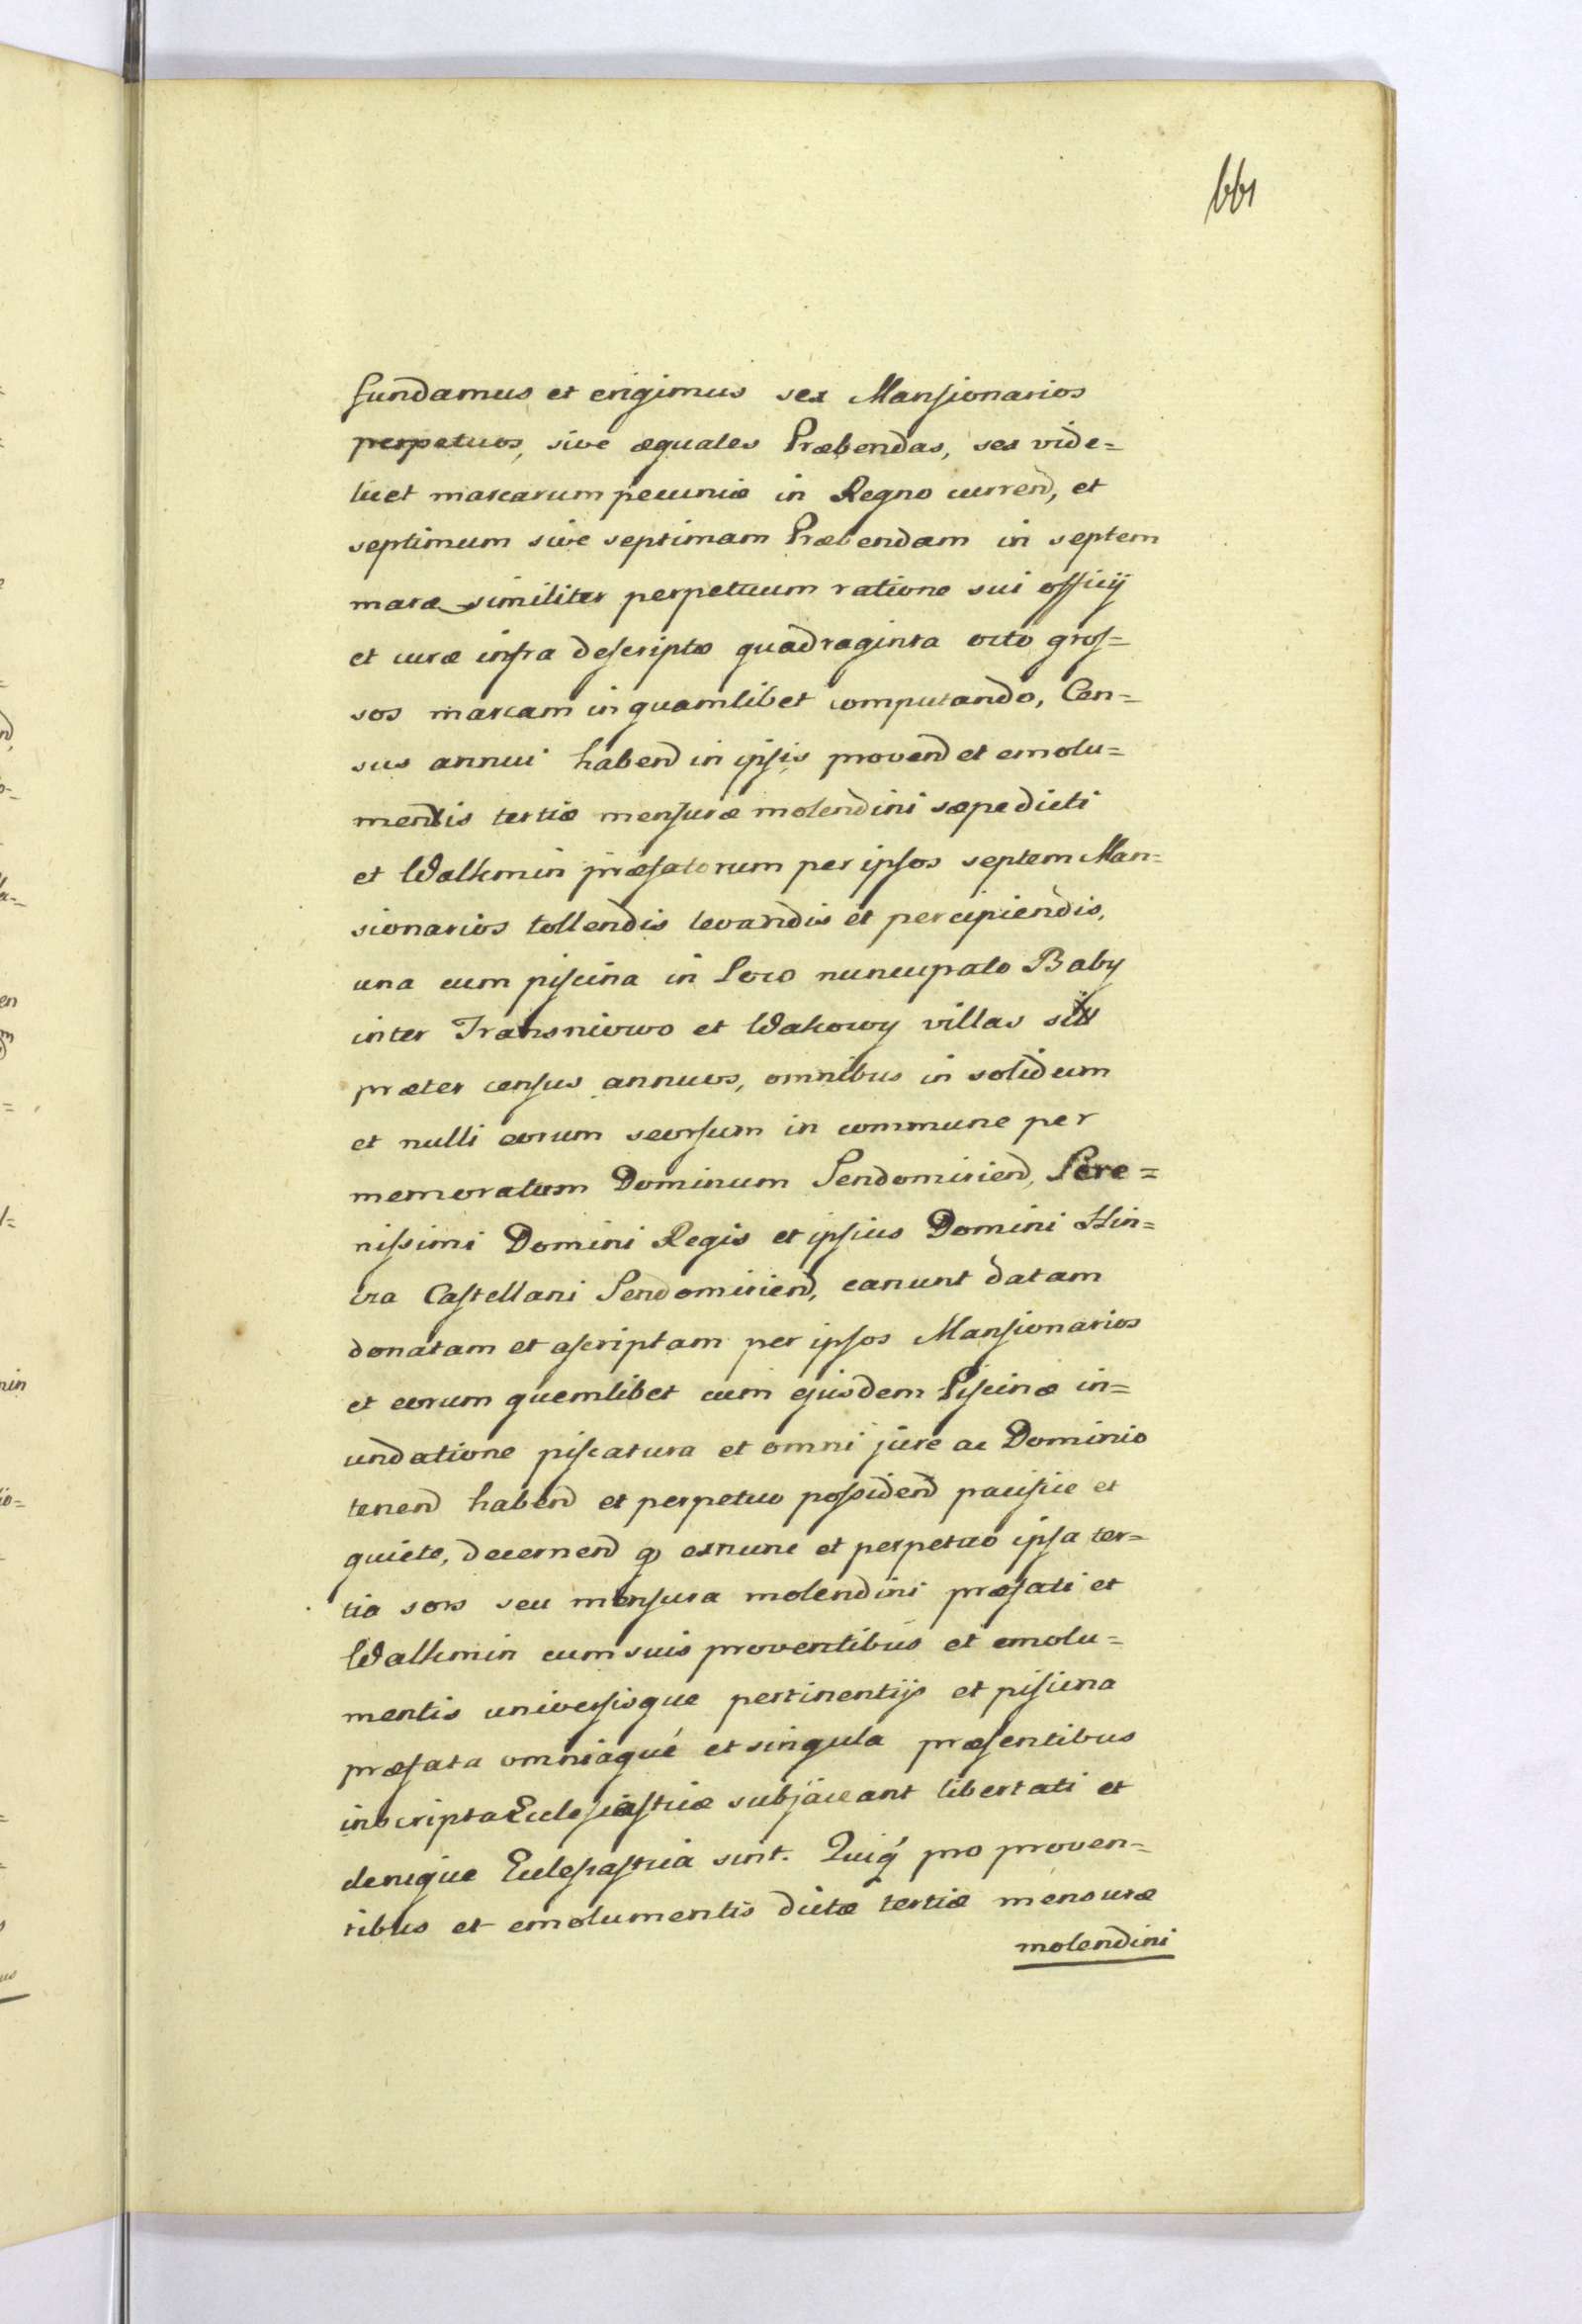 661
fundamus et erigimus sex Mansionarios
perpetuos, sive æquales Præbendas, sex vide=
licet marcarum pecuniæ in Regno currend, et
septimum sive septimam Præbendam in septem
marc similiter perpetuum ratione sui officij
et curæ infra descriptæ quadraginta octo gros=
sos marcam in quamlibet computando, Cen=
sus annui habend in ipsis provend et emolu=
mentis tertiæ mensuræ molendini sæpedicti
et Walkmin præfatorum per ipsos septem Man=
sionarios tollendis levandis et percipiendis,
una cum piscina in Loco nuncupato Baby
inter Transniowo et Wakowy villas
præter census annuos, omnibus in solidum
et nulli eorum seorsum in commune per
memoratum Dominum Sendomirien, Sere=
nissimi Domini Regis et ipsius Domini Hin=
cza Castellani Sendomirien, eanunt datam
donatam et ascriptam per ipsos Mansionarios
et eorum quemlibet cum ejusdem Piscinæ in=
undatione piscatura et omni jure ac Dominio
tenend habend et perpetuo possidend pacifice et
quiete, decernend q exnunc et perpetuo ipsa ter=
tia sors seu mensura molendini præfati et
Walkmin cum suis proventibus et emolu=
mentis universisque pertinentijs et piscina
præfata omniaque et singula præsentibus
inscripta Ecclesiasticæ subjaceant libertati et
denique Ecclesiastica sint. Quiq pro proven=
tibus et emolumentis dictæ tertiæ mensuræ
molendini